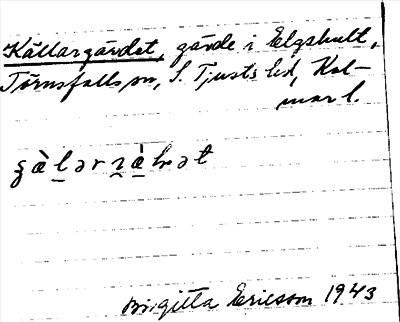 Källargärdet, gärde i Elgshult,
Törnsfalls sn, S. Tjusts hd, Kal-
mar l.
Birgitta Ericsson 1943